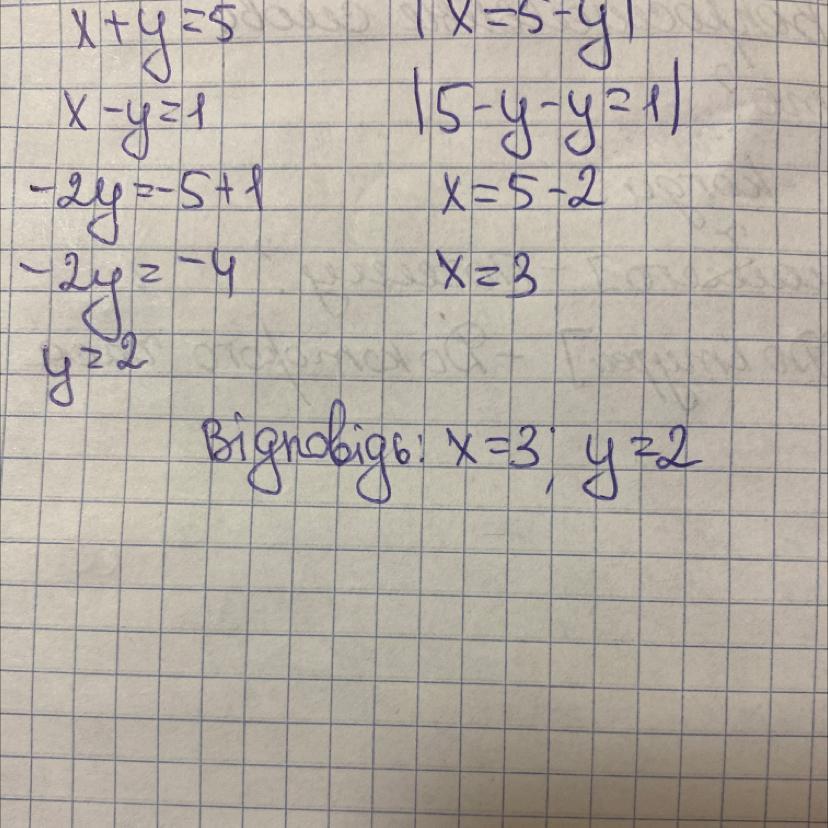 x+y=5 |x=5-y|
x-y=1 |5-y-y=1|
-2y=-5+1 x=5-2
-2y=-4 x=3
y=2
Відповідь: x=3; y=2